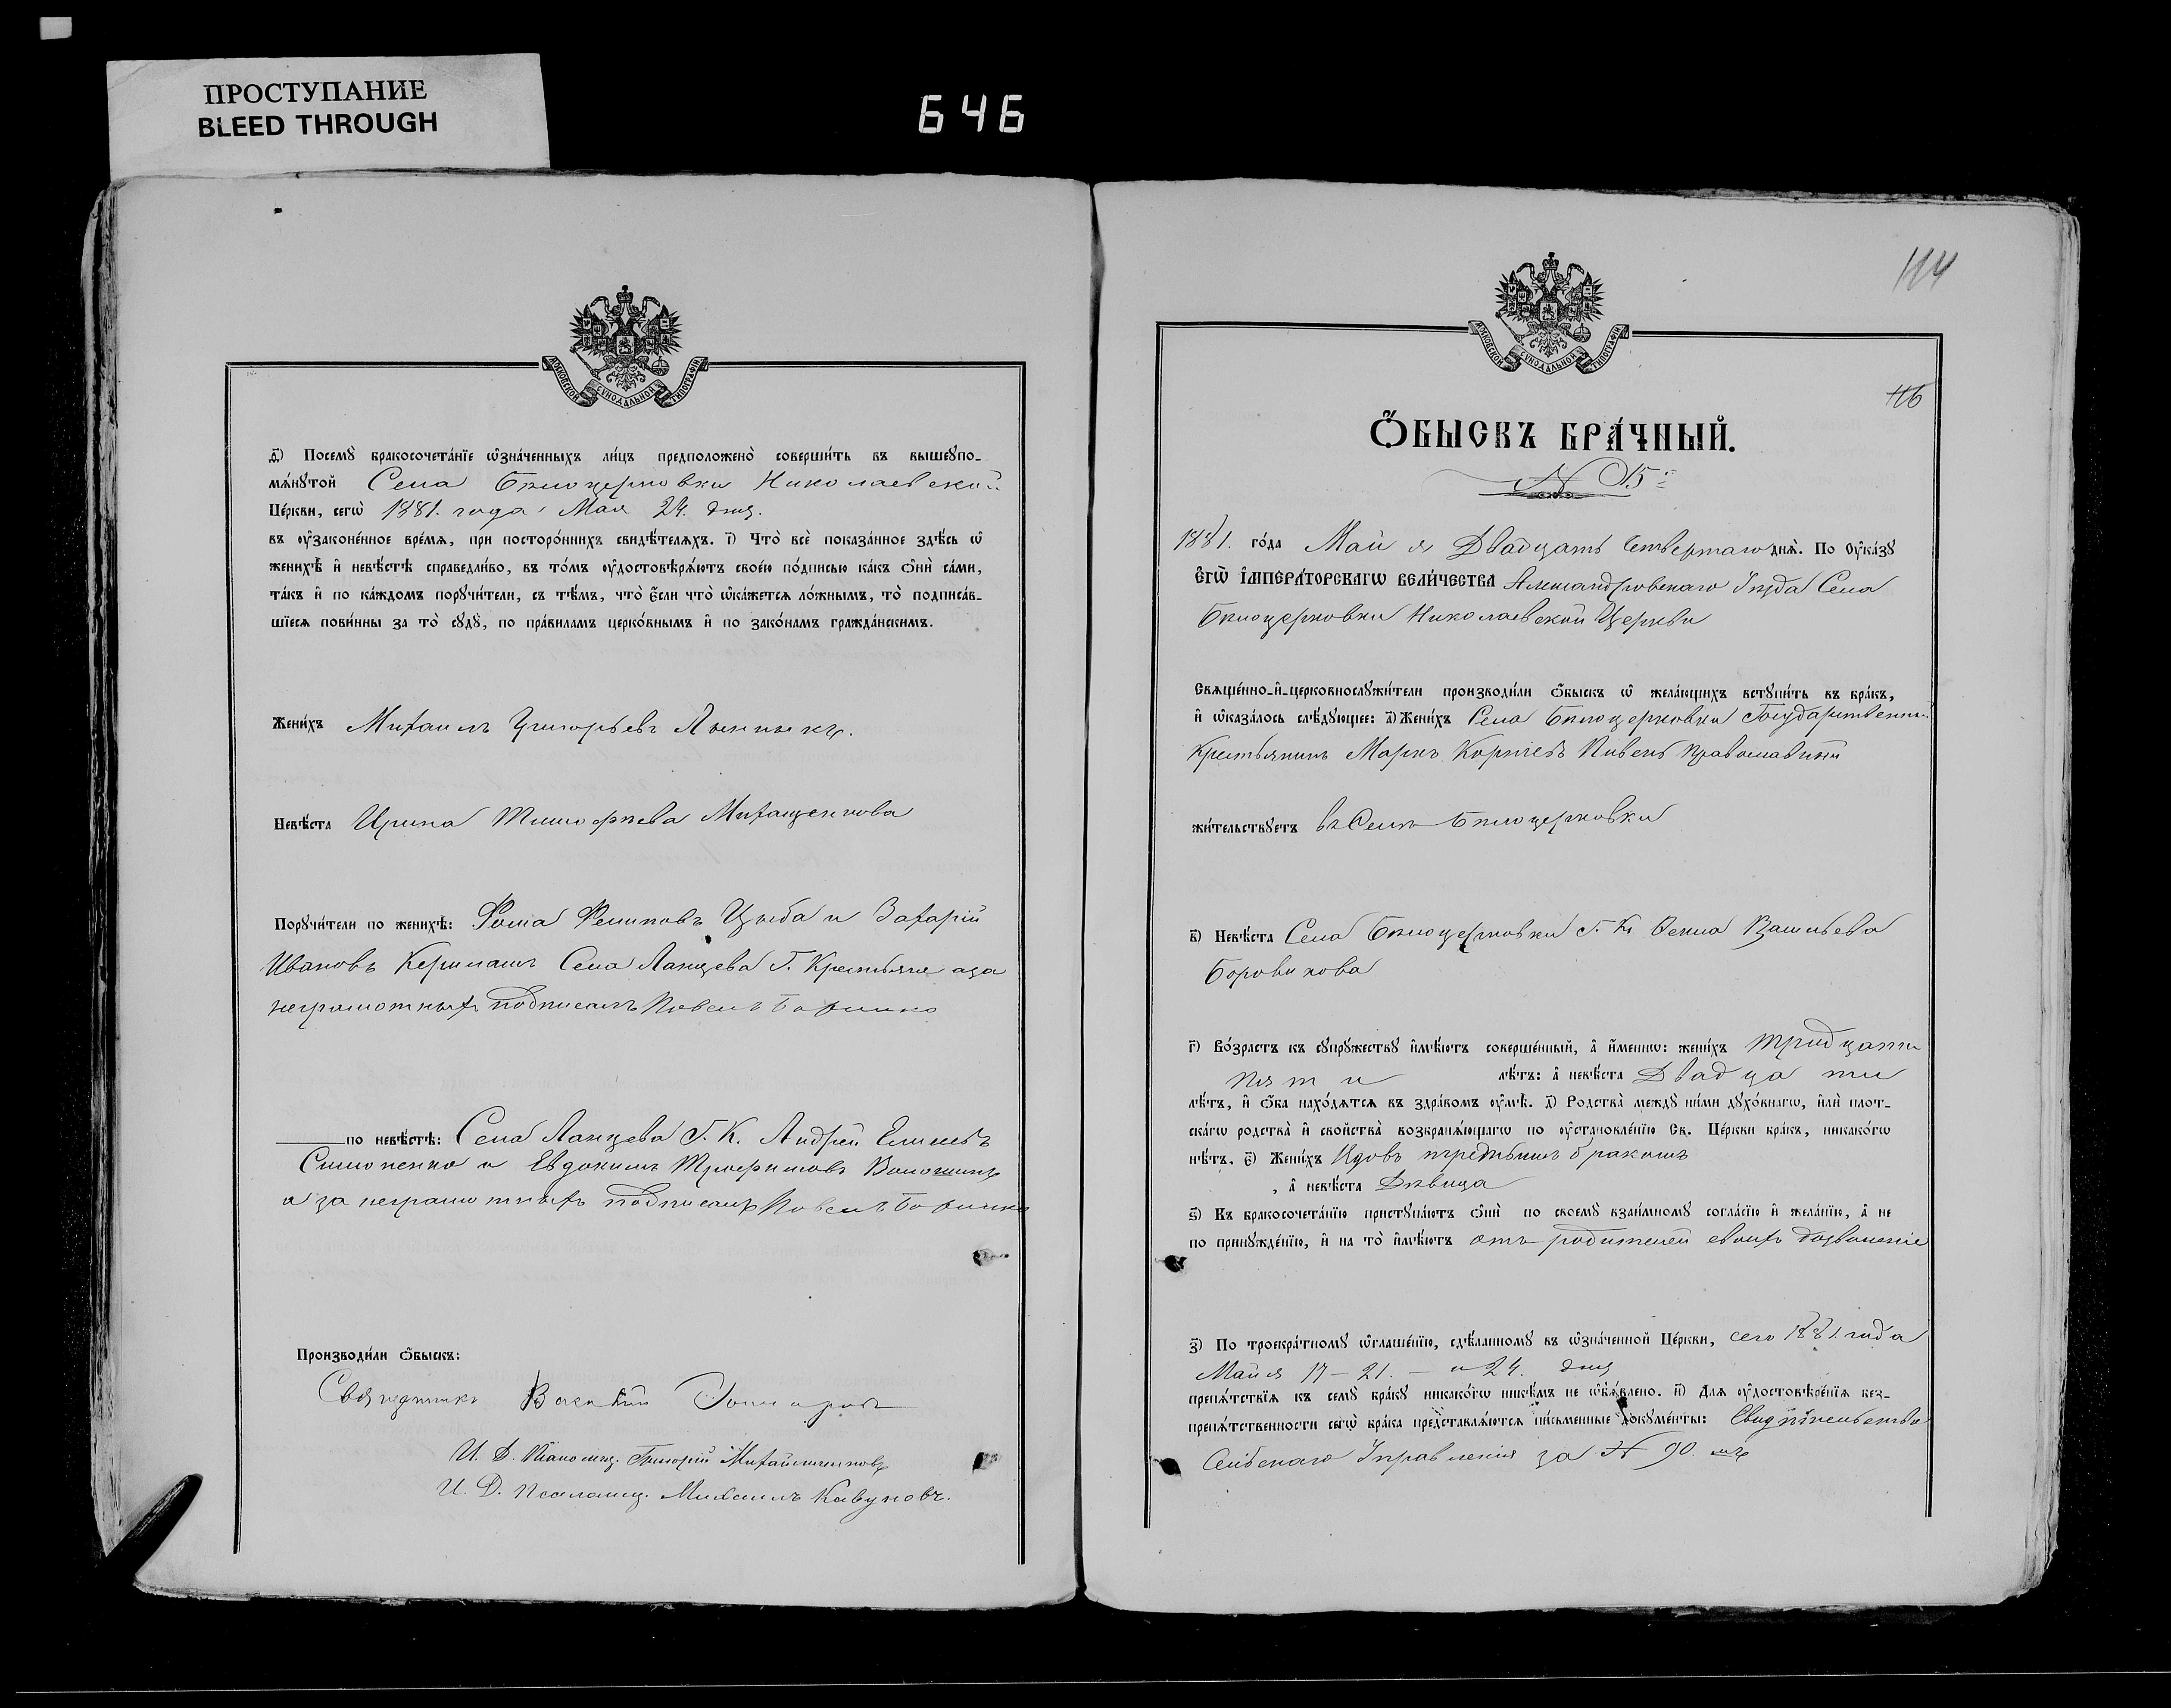 ПРОСТУПАНИЕ
BLEED THROUGH
646
МОСКОВСКОЙ СѴНОДАЛЬНОЙ ТИПОГРАФІИ
д҃і) Посемꙋ̀ бракосочета́нїе ѡ҆зна́ченныхъ ли́цъ предположено̀ соверши́ть въ вышеꙋпо-
мѧ́нꙋтой Села Белоцерковки Николаевской
Це́ркви, сегѡ̀ 1881. года, Мая 24. дня.
въ ᲂу҆законе́нное вре́мѧ, при посторо́ннихъ свидѣ́телѧхъ. і҃) Что̀ всѐ пока́занное здѣ́сь ѡ҆
женихѣ̀ и҆ невѣ́стѣ справедли́во, въ то́мъ ᲂу҆достовѣрѧ́ютъ свое́ю по́дписью ка́къ ѻ҆нѝ са́ми,
та́къ и҆ по ка́ждомъ порꙋчи́тели, съ тѣ́мъ, что̀ є҆́сли что̀ ѡ҆ка́жетсѧ ло́жнымъ, то̀ подписа́в-
шїесѧ пови́нны за то̀ сꙋдꙋ̀, по пра́виламъ церко́внымъ и҆ по зако́намъ гражда́нскимъ.
Жени́хъ Михаилъ Григорьевъ
Невѣ́ста Ирина Тимофѣева Михащенкова
Порꙋчи́тели по женихѣ̀: Фома Филиповъ Цыба и Захарій
Ивановъ Села Ланцева Г. Крестьяне а за
неграмотныхъ подписалъ
по невѣ́стѣ: Села Ланцева Г. К. Андрей
Симоненко и Евдокимъ Трофимовъ Волошинъ
а за неграмотныхъ подписалъ
Производи́ли ѻ҆́быскъ:
Священникъ Василій Гончаровъ
И. Д. Псаломщ. Григорій
И. Д. Псаломщ. Михаилъ Кавуновъ.
114
МОСКОВСКОЙ СѴНОДАЛЬНОЙ ТИПОГРАФІИ
116
Ѻ҆́БЫСКЪ БРА́ЧНЫЙ.
N 15
1881. го́да Май я Двадцать Четвертаго днѧ̀. По ᲂу҆ка́зꙋ
Є҆ГѠ̀ І҆МПЕРА́ТОРСКАГѠ ВЕЛИ́ЧЕСТВА Александровскаго Уѣзда Села
Белоцерковки Николаевской Церкви
Сващ҆е́нно-и҆-церковнослꙋжи́тели производи́ли ѻ҆́быскъ ѡ҆ жела́ющихъ встꙋпи́ть въ бра́къ,
и҆ ѡ҆каза́лось слѣ́дꙋющее: а҃) Жени́хъ Села Белоцерковки Государственн.
Крестьянинъ Маркъ Пивень Православный
жи́тельствꙋетъ въ Селѣ Белоцерковки
в҃) Невѣ́ста Села Белоцерковки Г. К. Васильева
Боровикова
г҃) Во́зрастъ къ сꙋпрꙋ́жествꙋ и҆мѣ́ютъ соверше́нный, а҆ и҆́менно: жени́хъ тридцати
пяти лѣ́тъ: а҆ невѣ́ста Двадцати
лѣ́тъ, и҆ ѻ҆́ба нахо́дѧтсѧ въ здра́вомъ ᲂу҆мѣ̀. д҃) Родства̀ междꙋ̀ ни́ми дꙋхо́внагѡ, и҆лѝ плот-
ска́гѡ родства̀ и҆ свойства̀ возбранѧ́ющагѡ по ᲂу҆становле́нїю Св. Це́ркви бра́къ, никако́гѡ
нѣ́тъ. є҃) Жени́хъ Вдовъ первымъ бракомъ
, а҆ невѣ́ста Дѣвица
ѕ҃) Къ бракосочета́нїю пристꙋпа́ютъ ѻ҆нѝ по своемꙋ̀ взаи́мномꙋ согла́сїю и҆ жела́нїю, а҆ не
по принꙋжде́нїю, и҆ на то̀ и҆мѣ́ютъ отъ родителей своихъ дозволеніе
з҃) По троекра́тномꙋ ѡ҆глаше́нїю, сдѣ́ланномꙋ въ ѡ҆зна́ченной Це́ркви, сего 1881. года
Майя 17 — 21. — и 24. дня
препѧ́тствїѧ къ семꙋ̀ бра́кꙋ никако́гѡ никѣ́мъ не ѡ҆б̾ѧ́влено. и҃) Длѧ ᲂу҆достовѣре́нїѧ без-
препѧ́тственности сегѡ̀ бра́ка представлѧ́ютсѧ пи́сьменные докꙋме́нты: Свидѣтельство
Сельскаго Управленія за N 90.